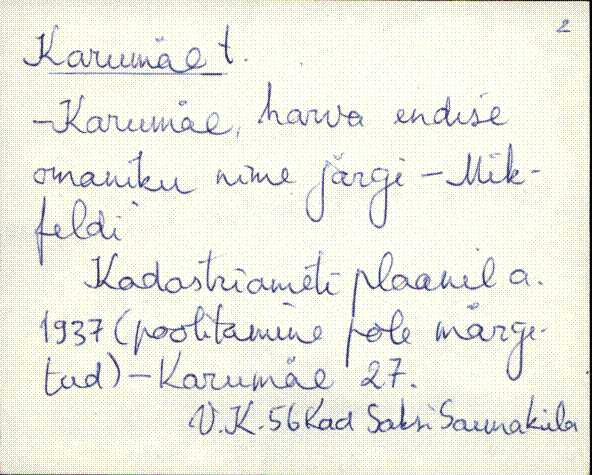 2
Karumäe t.
-Karumäe, harva endise
omaniku nime järgi - Mik-
feldi
Kadastriameti plaanil a.
1937 (poolitamine pole märgi-
tud) - Karumäe 27.
V.K. 56 Kad Saksi Saunaküla